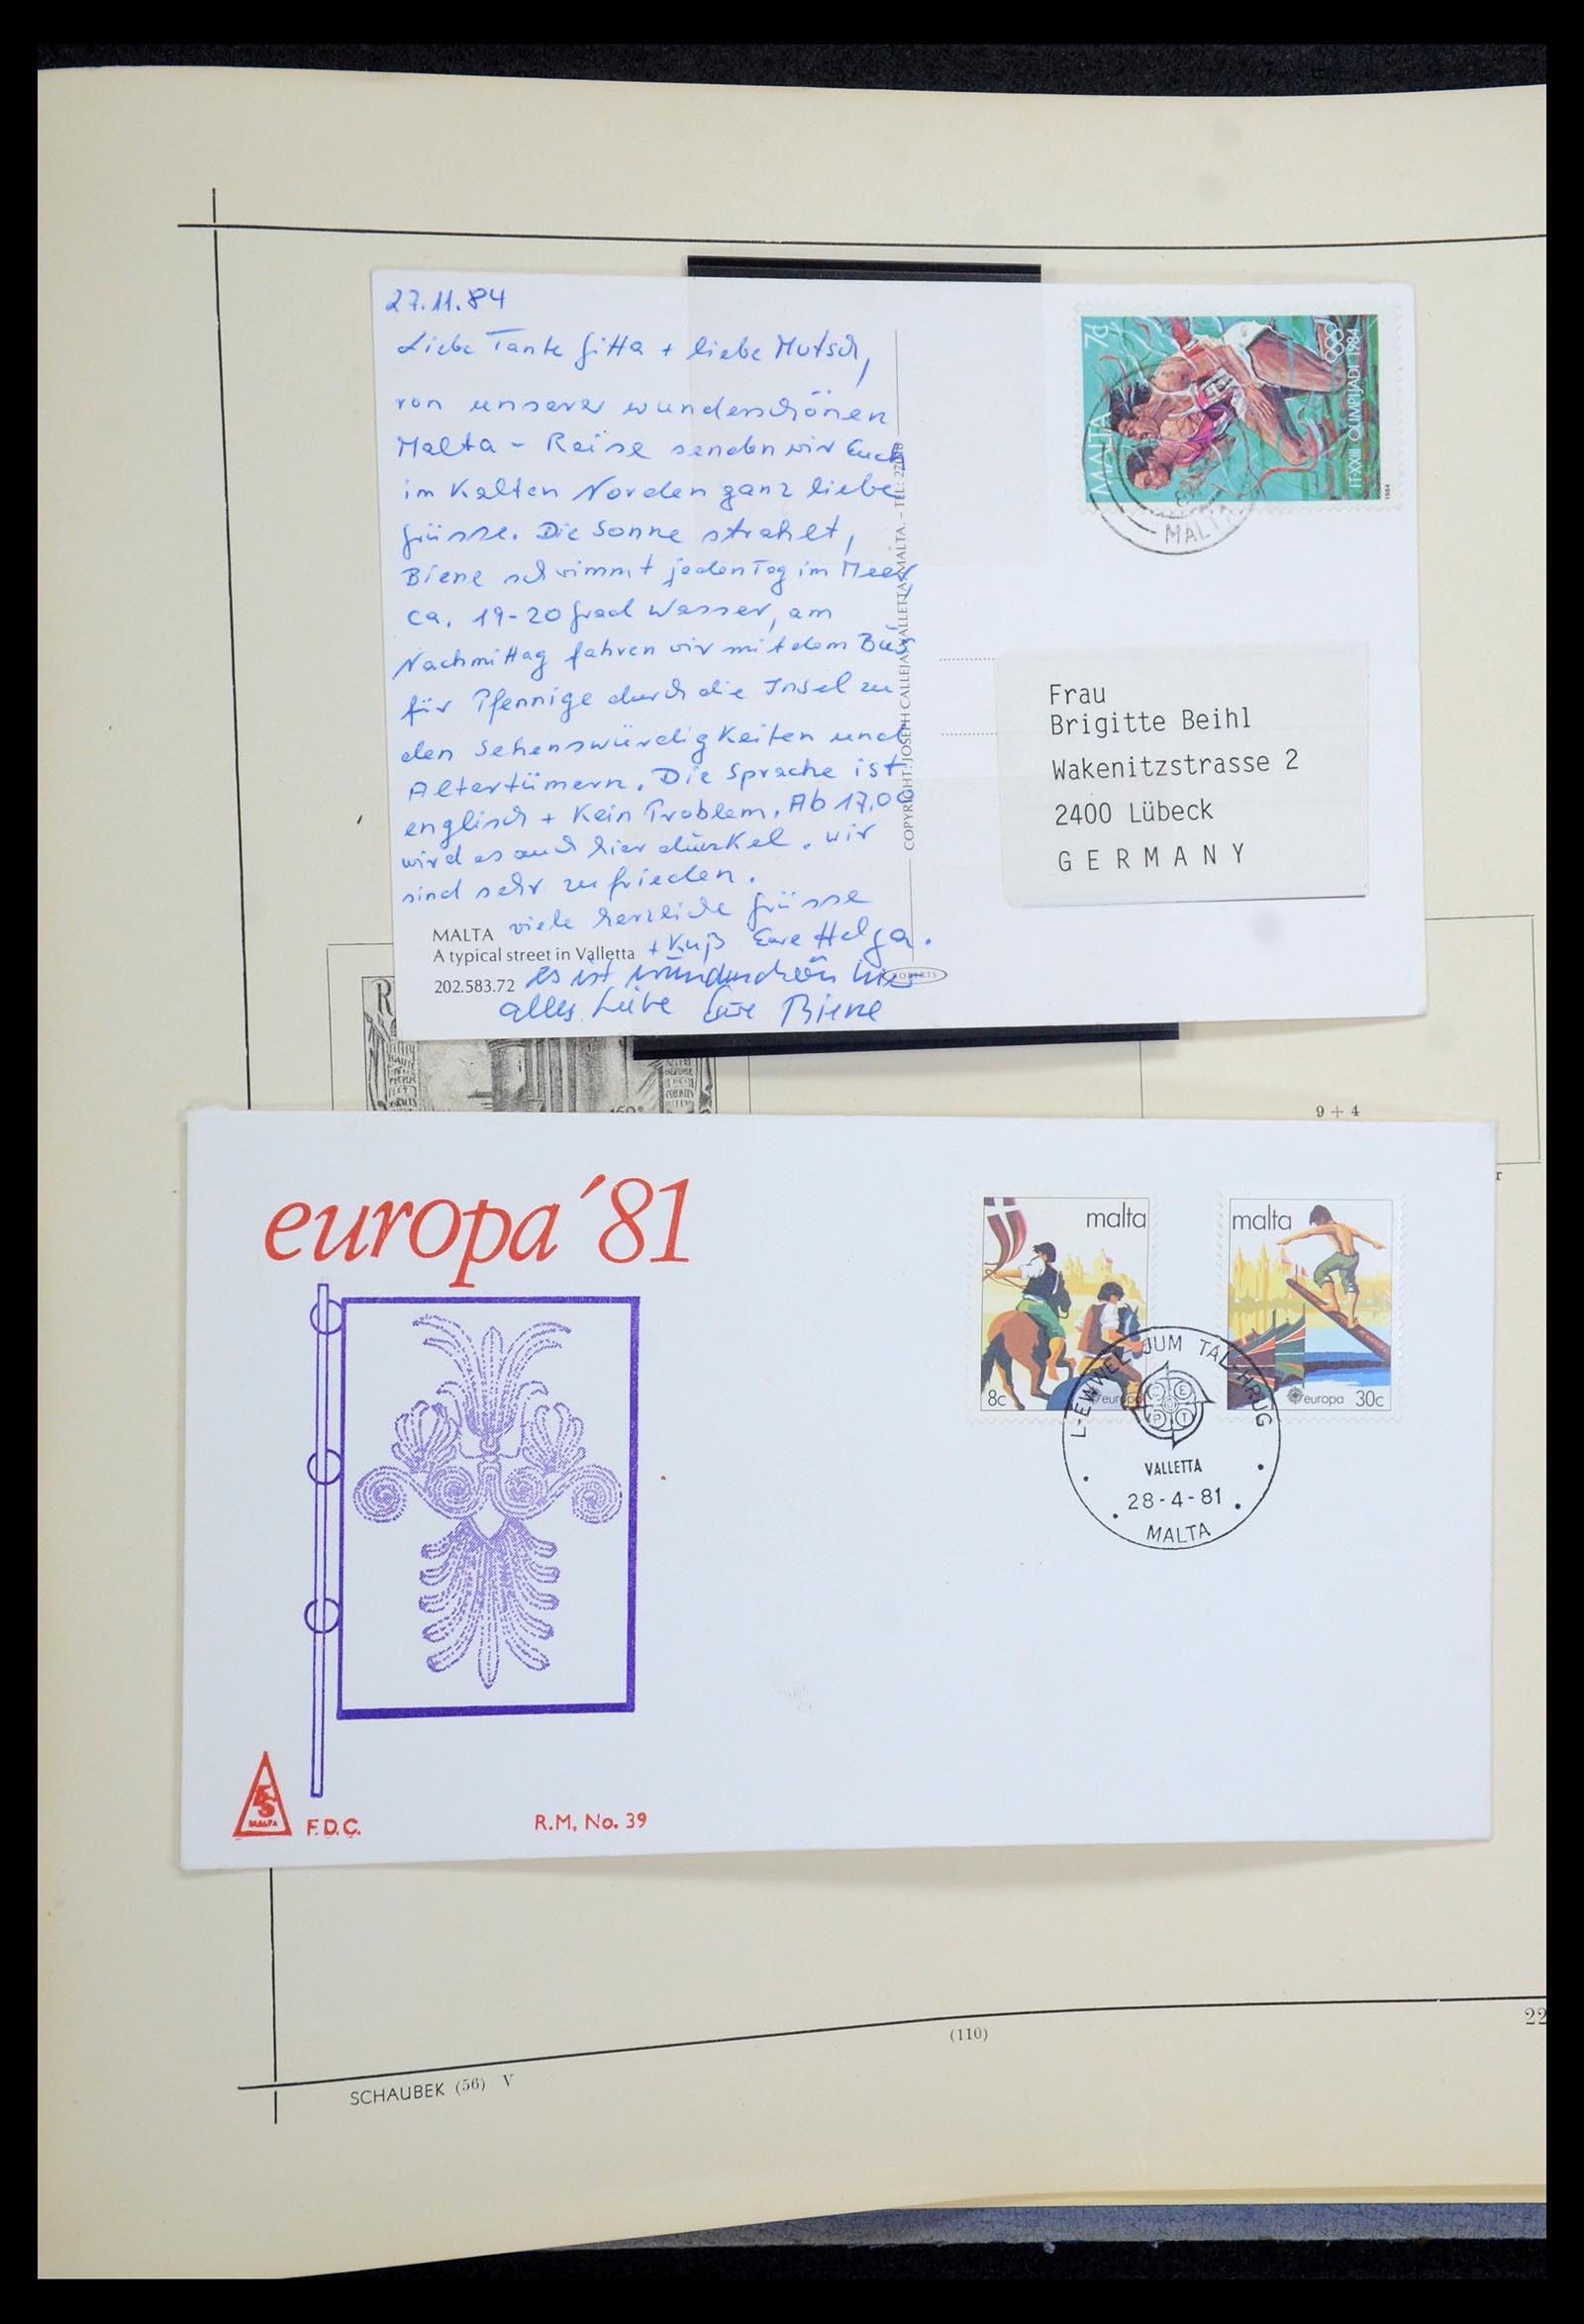 27.11.84
Liebe Tante Gitta + liebe Mutsch,
von unserer wunderschönen
Malta - Reise senden wir Euch
im Kalten Norden ganz liebe
Grüsse. Die Sonne strahlt,
Biene schwimmt jeden Tag im Meer,
ca. 19-20 Grad Wasser, am
Nachmittag fahren wir mit dem Bus
für Pfennige durch die Insel zu
den Sehenswürdigkeiten und
Altertümern. Die Sprache ist
englisch + Kein Problem. Ab 17.00
wird es auch hier dunkel. wir
sind sehr zufrieden.
viele herzliche Grüsse
+ Kuß Eure Helga.
es ist wunderschön hier
alles Liebe Eure Biene
MALTA
A typical street in Valletta
202.583.72
COPYRIGHT: JOSEPH CALLEJA, VALLETTA, MALTA. - TEL:
ROBERTS
MALTA
7c
IT-XXIII OLIMPIJADI 1984
1984
MALTA
Frau
Brigitte Beihl
Wakenitzstrasse 2
2400 Lübeck
GERMANY
R
9 + 4
r
europa '81
malta
8c
europa
malta
europa 30c
L-EWWEL JUM TAL-ĦRUĠ
CEPT
VALLETTA
28-4-81
MALTA
MALTA
F.D.C.
R.M. No. 39
(110)
22
SCHAUBEK (56) V